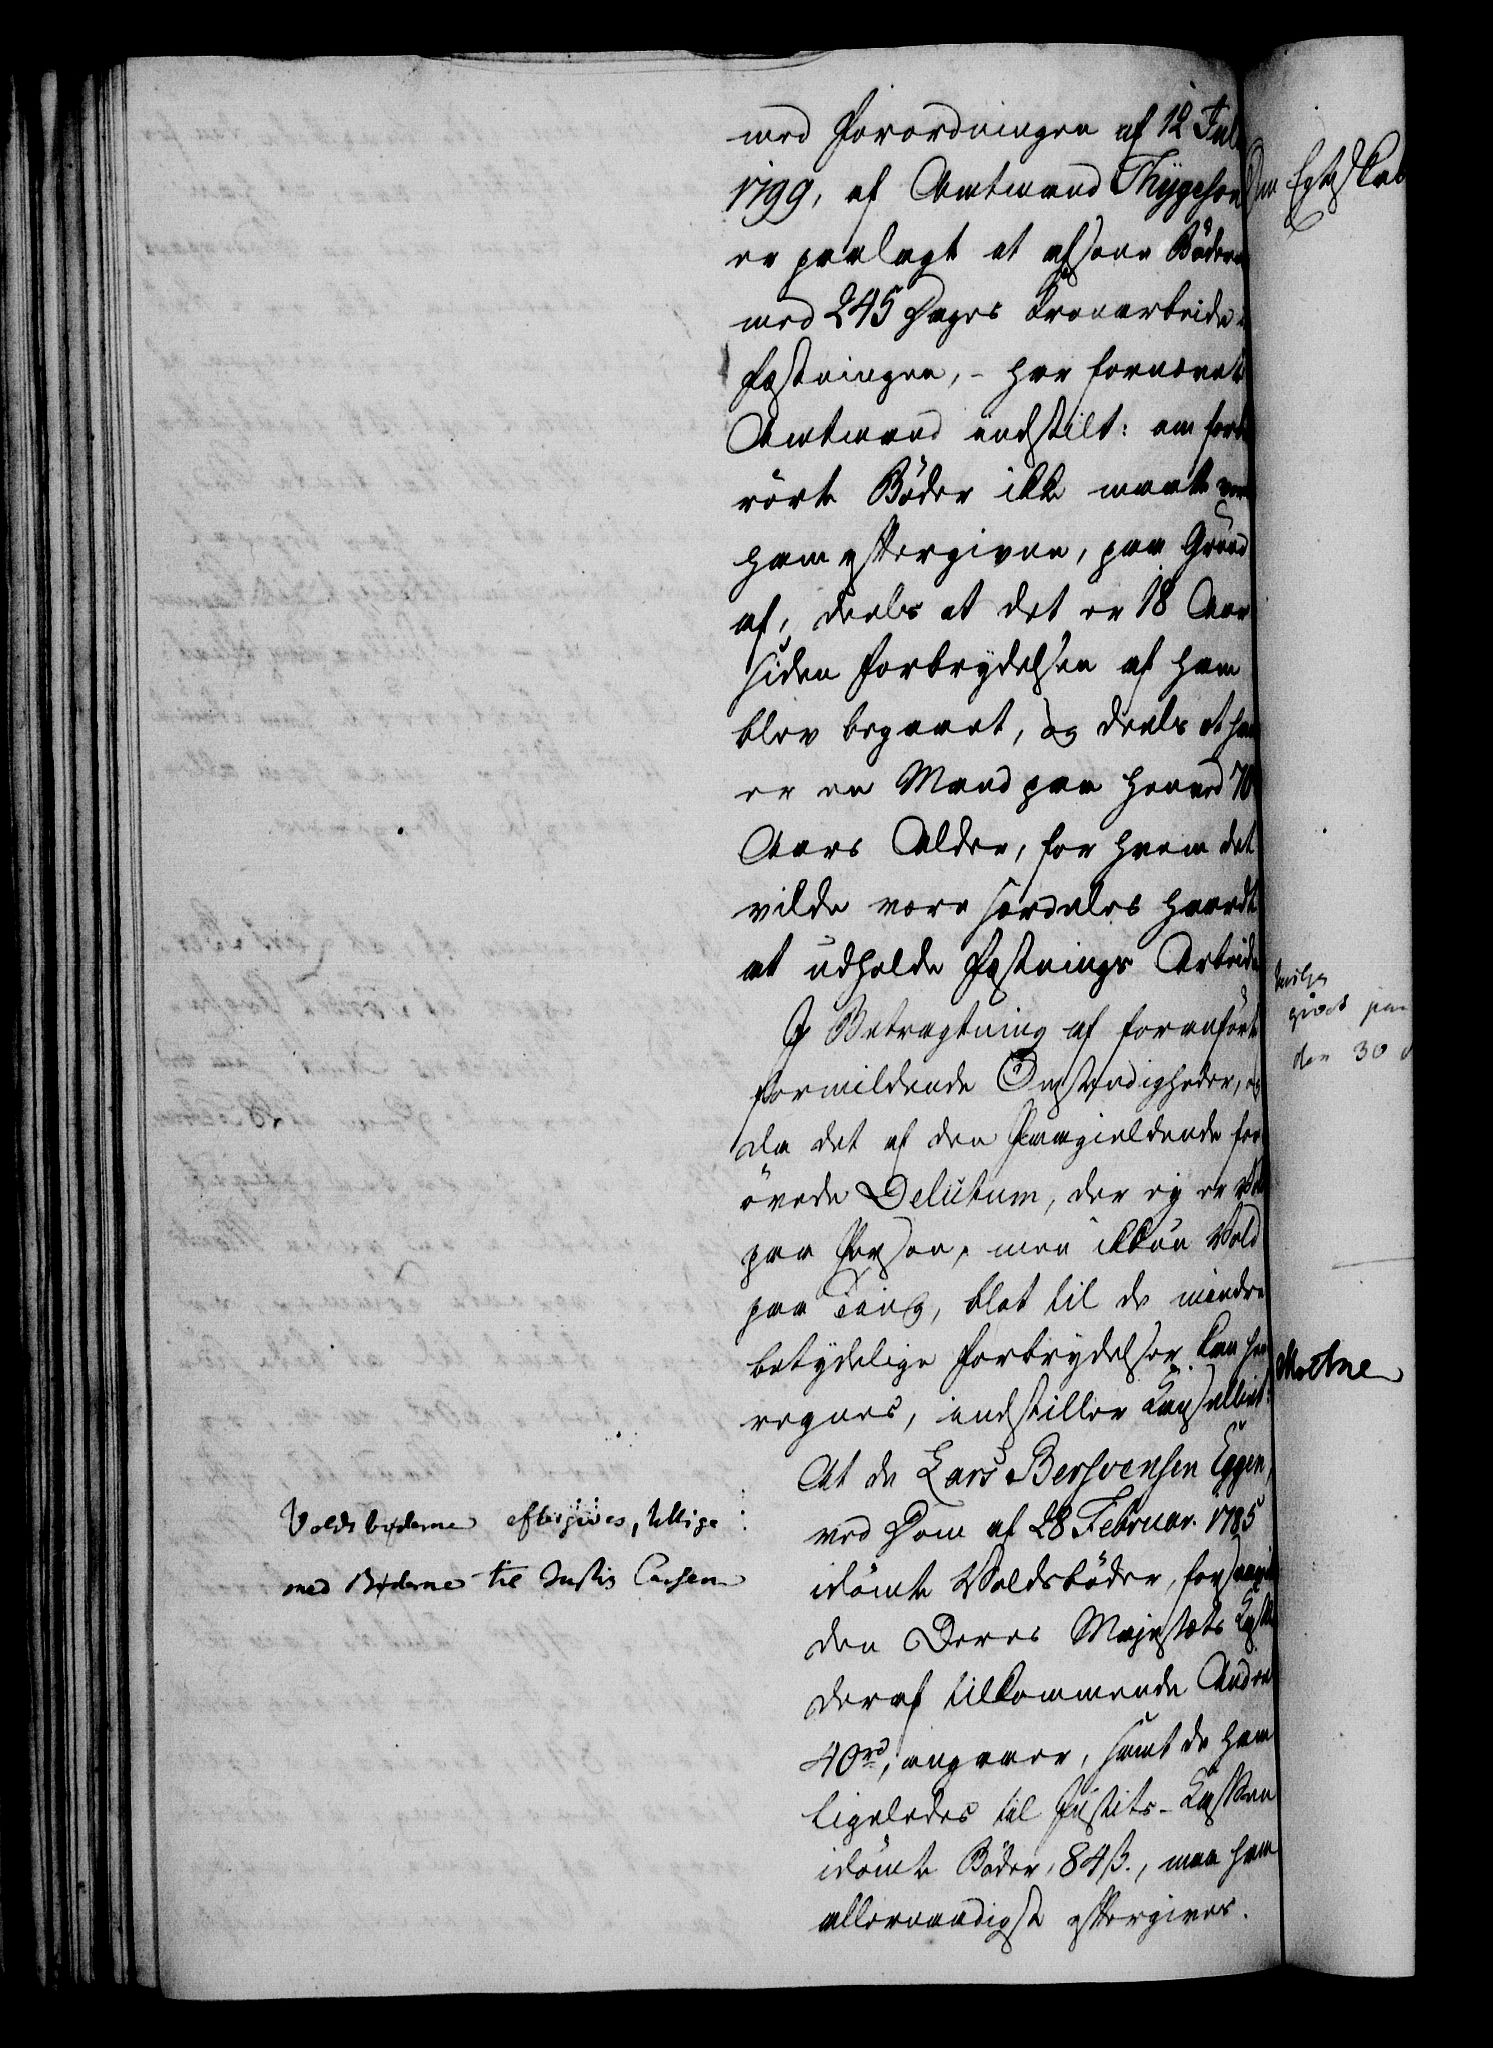 med Forordningen af 12 Juli
1799, af Amtmand Thygeson
er paalagt at afsone Bøderne
med 245 Dages Kronarbeide i
Fæstningen, - har fornævnte
Amtmand indstilt: om for be-
rörte Böder ikke maatte vorde
ham eftergivne, paa Grund
af, deels at det er 18 Aar
siden Forbrydelsen af ham
blev begaaet, og deels at han
er en Mand paa henved 70
Aars Alder, for hvem det
vilde være særdeles haardt
at udholde Fæstnings Arbeide
I Betragtning af foranförte
formildende Omstændigheder, og
da det af den Paagieldende for-
övede Delictum, der ey er Vold
paa Person, men ikkun Vold
paa Ting, blot til de mindre
betydelige Forbrydelser kan hen-
regnes, indstiller Kancelliet:
At de Lars Bersvensen Eggen,
ved Dom af 28 Februar. 1785
idömte Voldsböder, forsaavidt
den Deres Majestæts Kasse
deraf tilkommende Andeel
40 rd, angaaer, samt de ham
ligeledes til Justits-Kassen
idömte Böder, 84 ß., maa ham
allernaadigst eftergives.
Voldsbøderne eftergives, tillige
med Bøderne til Justits Cassen
Om Egteskab
givet paa
den 30